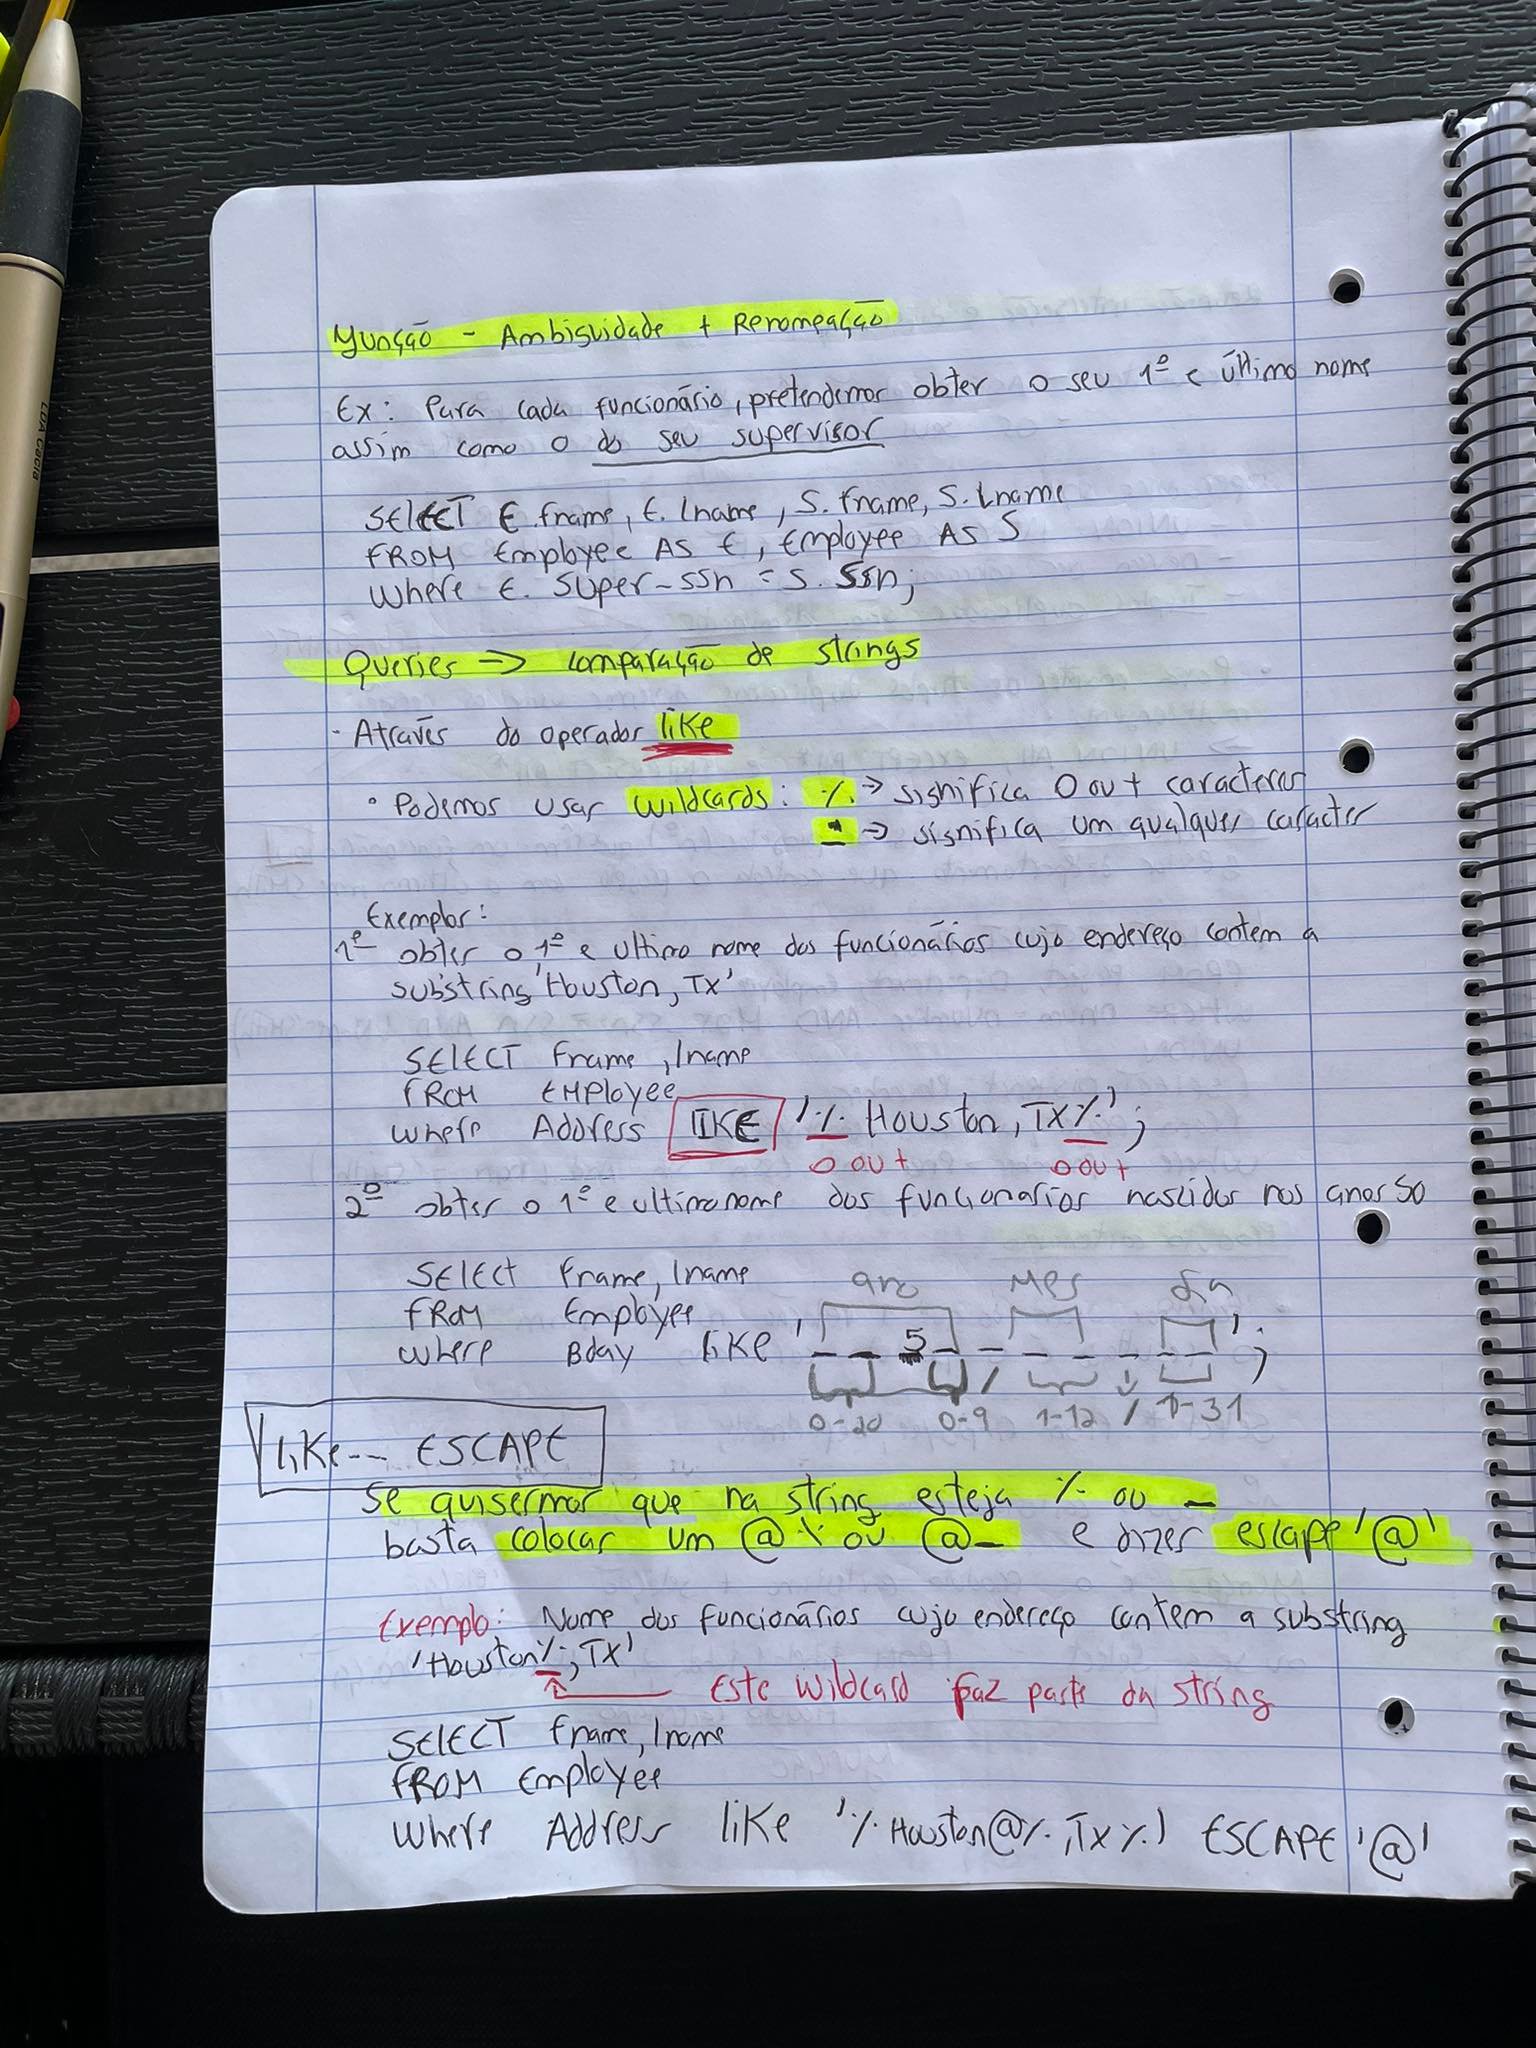 Junção - Ambiguidade + Renomeação
Ex: Para cada funcionário, pretendemos obter o seu 1º e último nome
assim como o do seu supervisor
SELECT E.fname, E.lname, S.fname, S.lname
FROM Employee AS E, Employee AS S
Where E.Super-ssn = S.Ssn;
Queries => Comparação de strings
- Através do operador like
• Podemos usar wildcards: % -> significa 0 ou + caracteres
_ -> significa um qualquer caracter
Exemplos:
1º obter o 1º e ultimo nome dos funcionários cujo endereço contem a
substring 'Houston, Tx'
SELECT Fname, lname
FROM EMPloyee
Where Address LIKE '% Houston, TX%';
0 ou + 0 ou +
2º obter o 1º e ultimo nome dos funcionarios nascidos nos anos 50
SELECT Fname, lname
ano Mês dia
FROM Employee
Where Bday like '_ _ 5 _ _ _ _ _ _ _';
0-20 0-9 / 1-12 / 1-31
like-- ESCAPE
Se quisermos que na string esteja % ou _
basta colocar um @% ou @_ e dizer escape '@'
Exemplo: Nome dos funcionários cujo endereço contem a substring
'Houston%, TX'
Este wildcard faz parte da string
SELECT fname, lname
FROM Employee
Where Address like '%Houston@%,Tx%' ESCAPE '@'
LDA Cacia